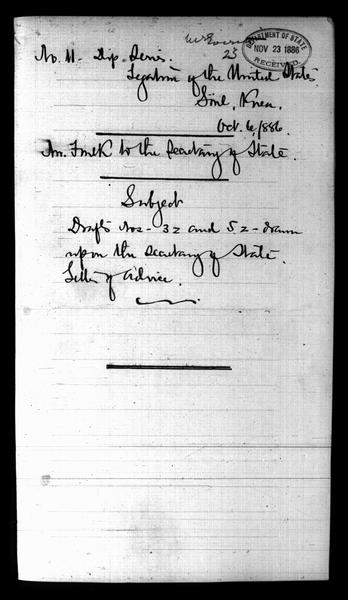 DEPARTMENT OF STATE
NOV 23 1886
RECEIVED
25
No. 11. Dip. Series.
Legation of the United States
Söul, Korea.
Oct. 6, 1886.
Mr. Foulk to the Secretary of State.
Subject
Drafts Nos - 3z and 5z - drawn
upon the Secretary of State.
Letter of Advice.